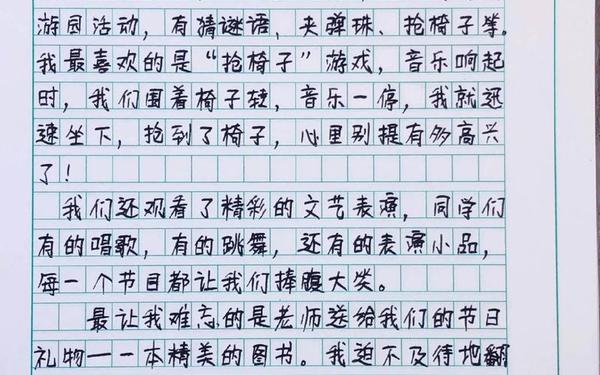 游园活动，有猜谜语、夹弹珠、抢椅子等。
我最喜欢的是“抢椅子”游戏，音乐响起
时，我们围着椅子转，音乐一停，我就迅
速坐下，抢到了椅子，心里别提有多高兴
了！
我们还观看了精彩的文艺表演，同学们
有的唱歌，有的跳舞，还有的表演小品，
每一个节目都让我们捧腹大笑。
最让我难忘的是老师送给我们的节日
礼物——一本精美的图书。我迫不及待地翻